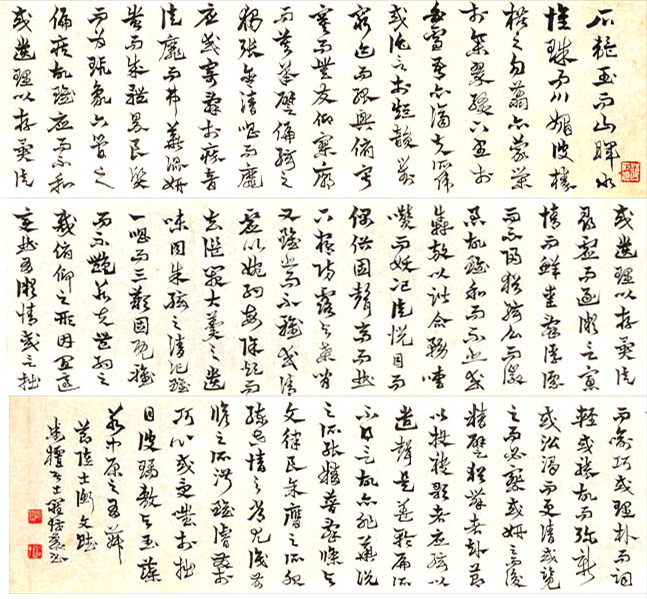 石韞玉而山暉水
懷珠而川媚彼榛
楛之勿翦亦蒙榮
於集翠綴下里於
白雪吾亦濟夫所偉
或託言於短韻對
窮迹而孤興俯寂
寞而無友仰寥廓
而莫承譬偏絃之
獨張含清唱而靡
應或寄辭於瘁音
徒靡而弗華混妍
蚩而成體累良質
而為瑕象下管之
偏疾故雖應而不和
或遺理以存異徒
或遺理以存異徒
尋虛而逐微言寡
情而鮮愛辭浮漂
而不歸猶絃么而徽
急故雖和而不悲或
奔放以諧合務嘈
囋而妖冶徒悅目而
偶俗固聲高而曲
下寤防露與桑間
又雖悲而不雅或清
虛以婉約每除煩而
去濫闕大羹之遺
味同朱絃之清氾雖
一唱而三歎固既雅
而不艷若夫豐約之
裁俯仰之形因宜適
變曲有微情或言拙
而喻巧或理朴而詞
輕或襲故而彌新
或沿濁而更清或覽
之而必察或妍之而後
精譬猶舞者赴節
以投袂歌者應絃以
遣聲是蓋輪扁所
不得言故亦非華說
之所能精普辭條與
文律良余膺之所服
練世情之常尤識前
脩之所淑雖濬發於
巧心或受蚩於拙目
彼瓊敷與玉藻
若中原之有菽
節陸士衡文賦